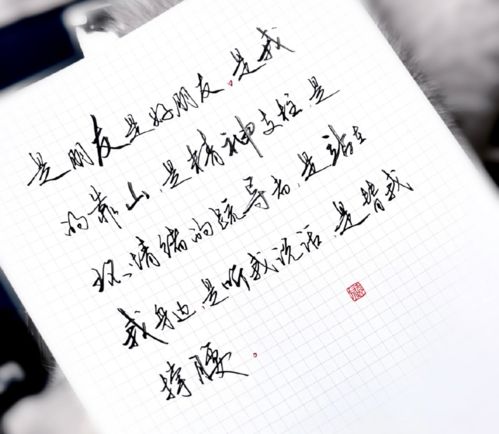 是朋友是好朋友。是我
的靠山,是精神支柱,是
坏情绪的疏导者,是站在
我身边,是听我说话 是替我
撑腰。